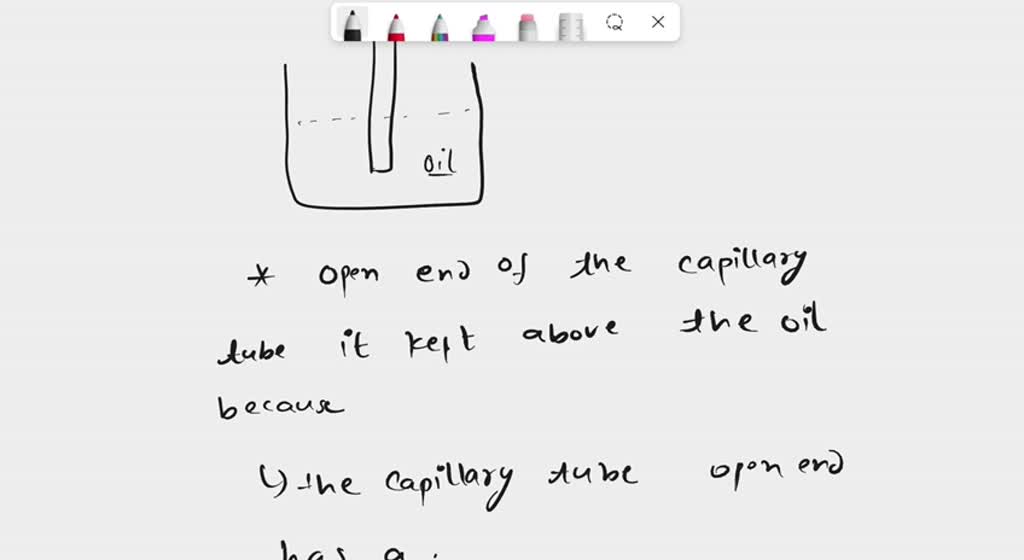 oil
* open end of the capillary
tube it kept above the oil
because
↳ the capillary tube open end
has a